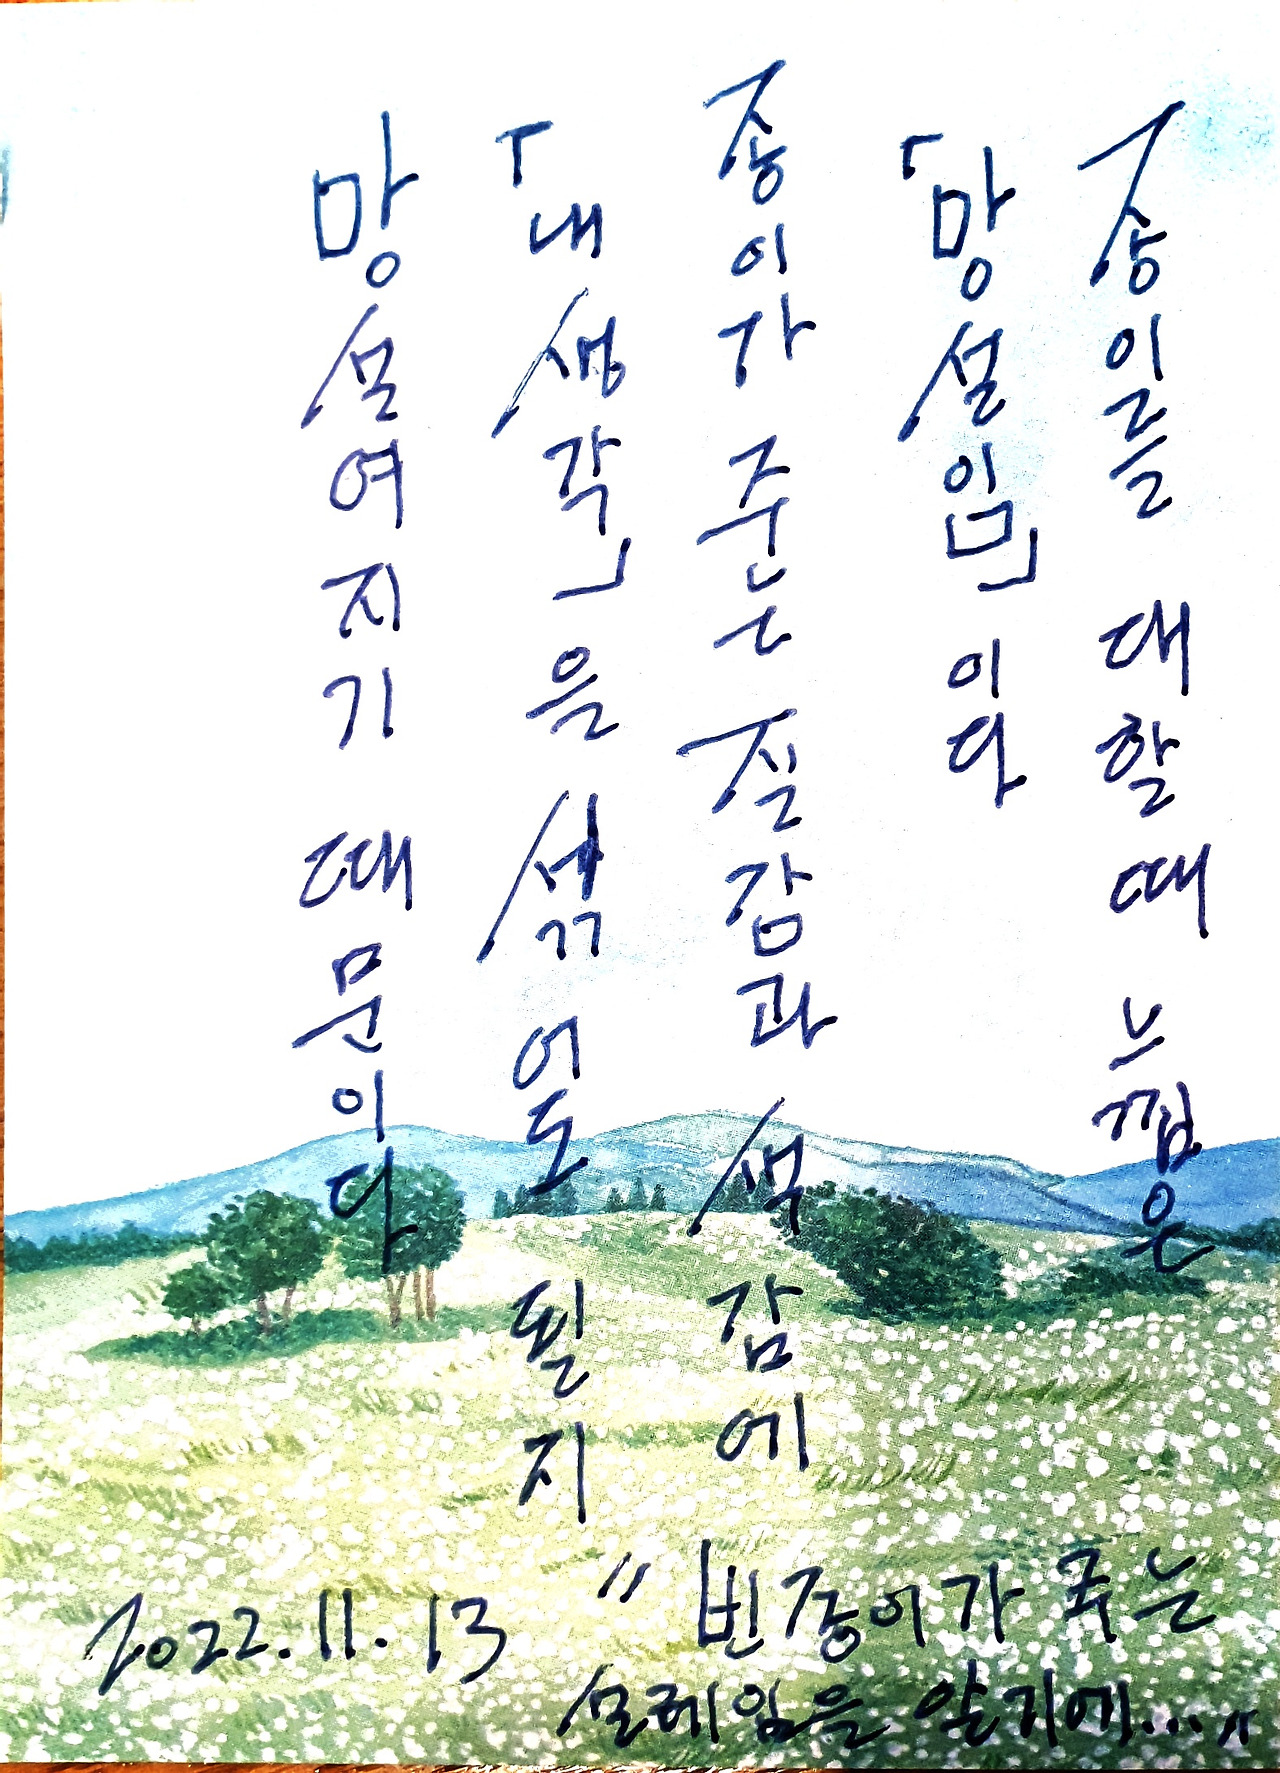 종이를 대할 때 느낌은
「망설임」이다
종이가 주는 질감과 색감에
「내 생각」을 섞어도 될지
망설여지기 때문이다
"빈종이가 주는
설레임을 알기에..."
2022.11.13